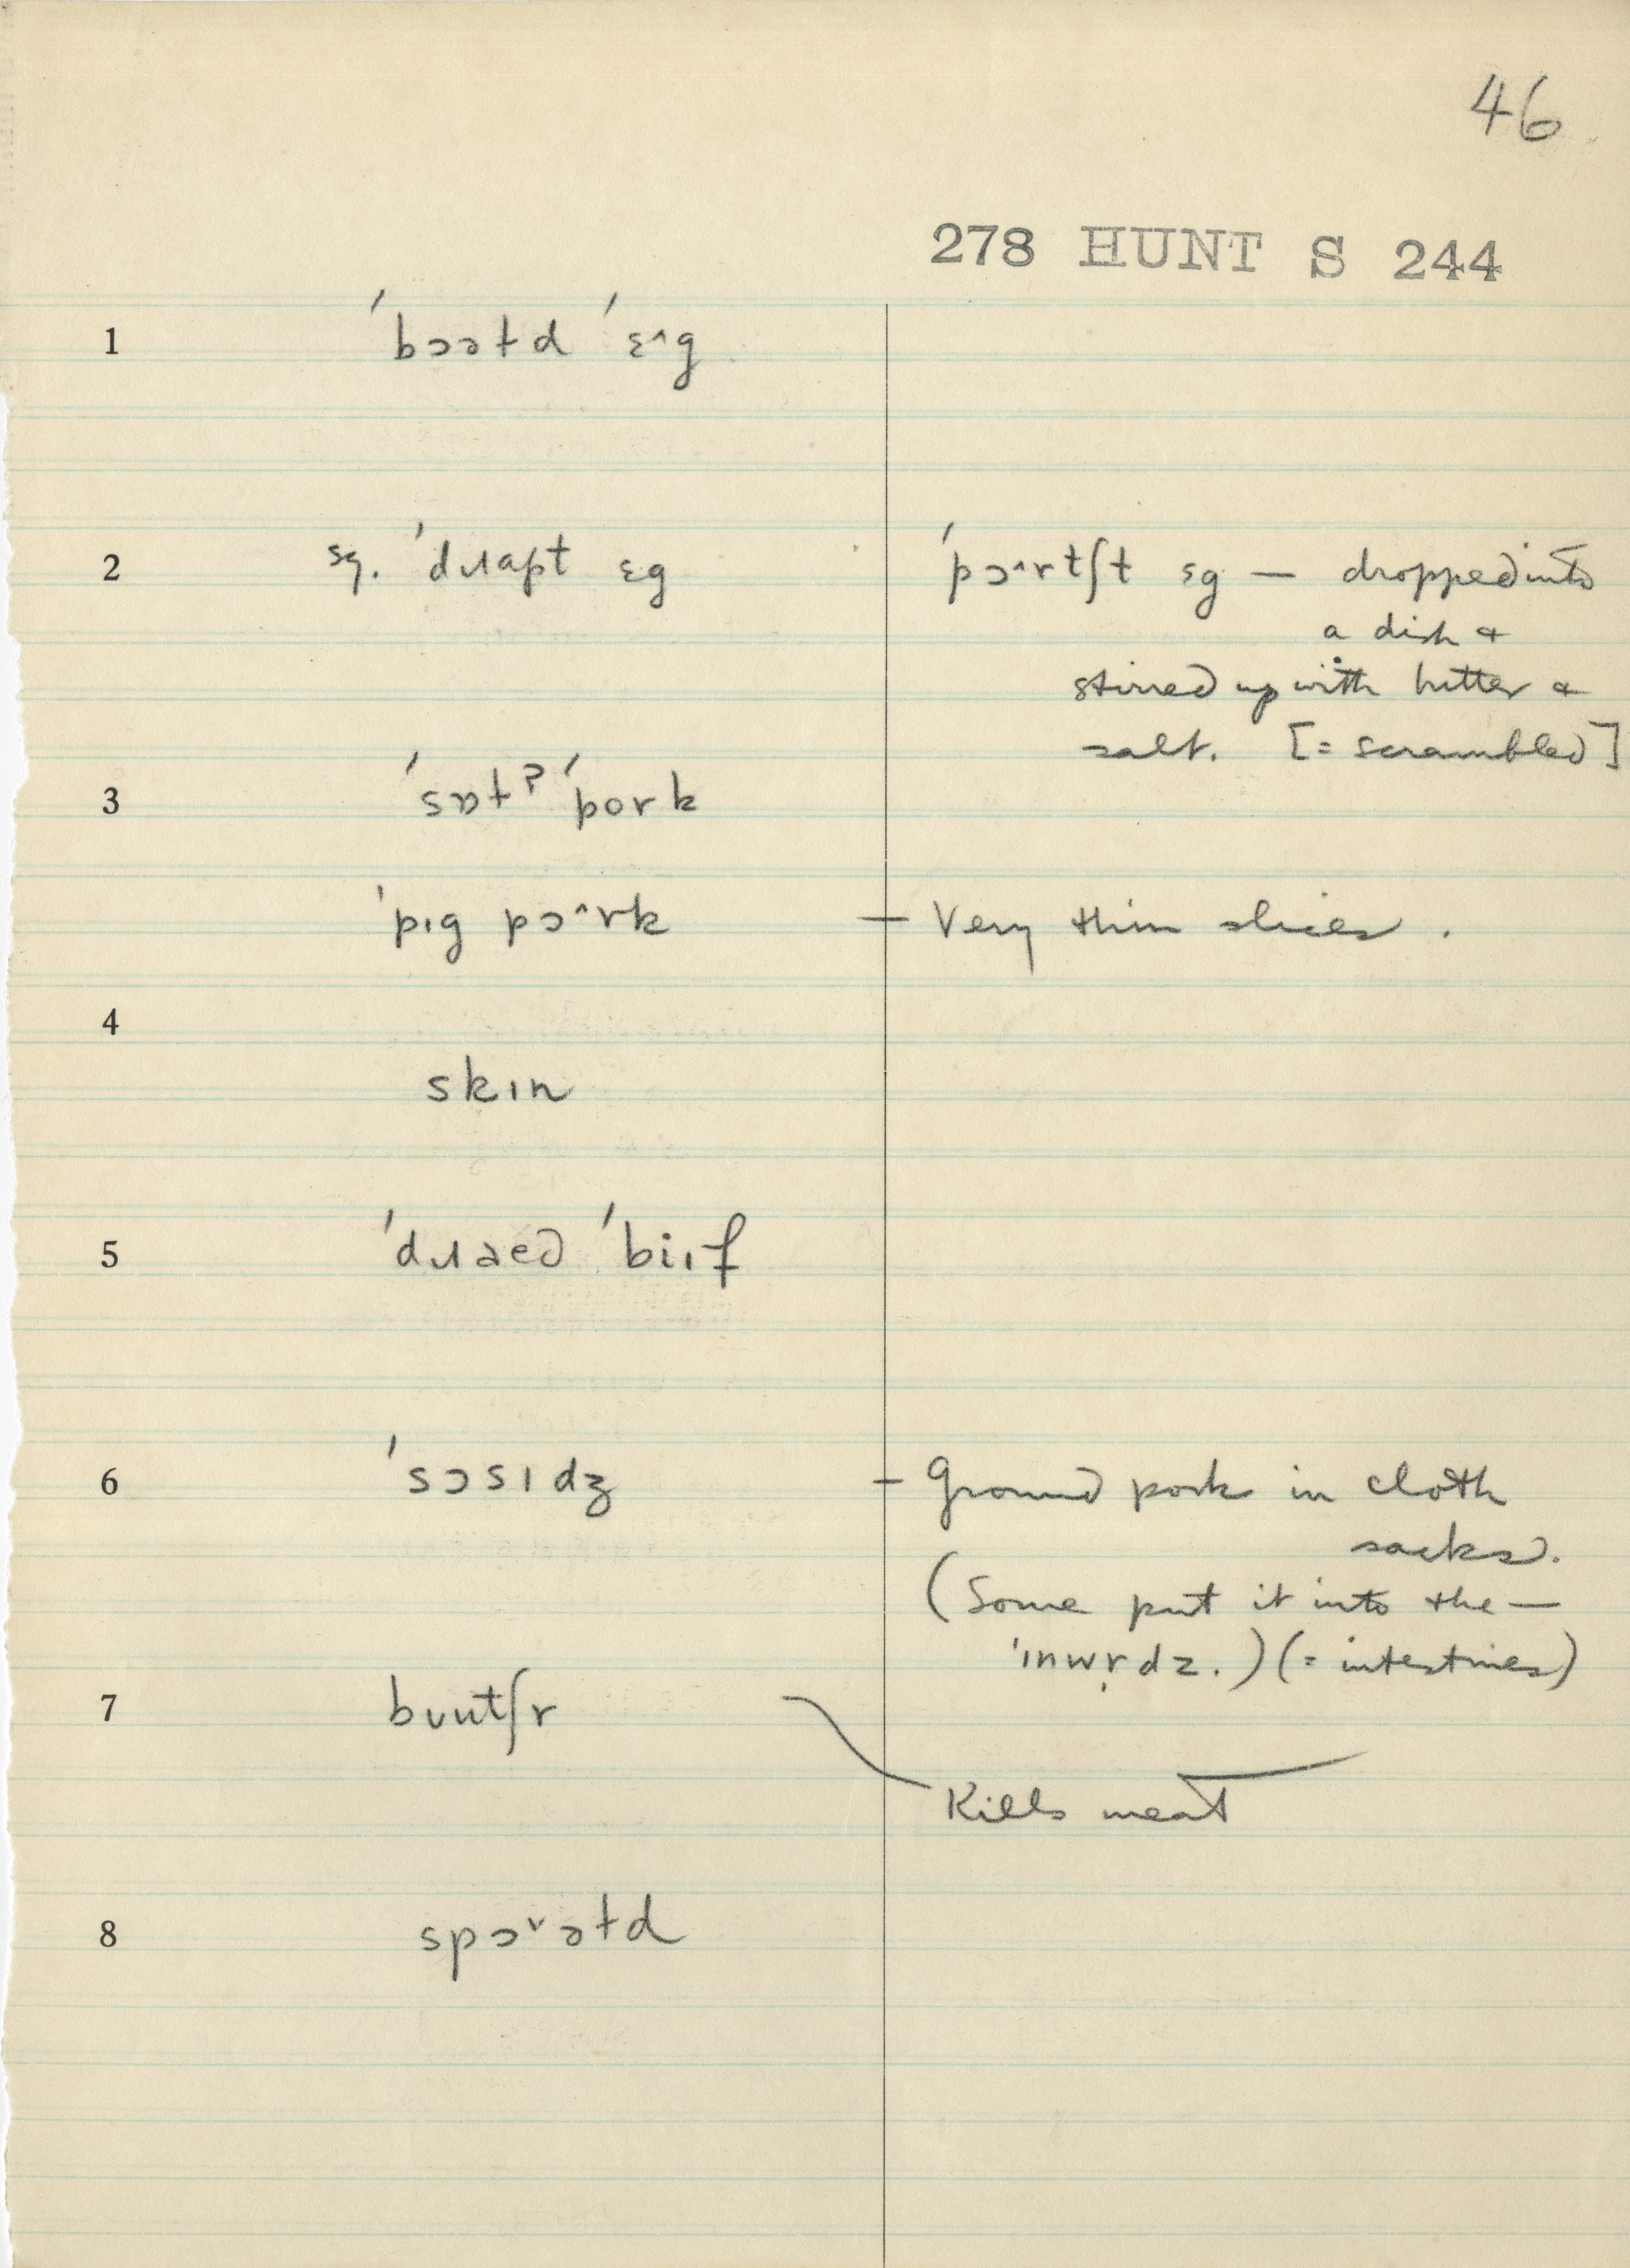 46
278 HUNT S 244
1 ˈbɔətd ˈɛ^g
2 sg. ˈdɹɑpt ɛg ˈpɔ^rtʃt ɛg — dropped into
a dish &
stirred up with butter &
salt. [= scrambled]
3 ˈsɒtʔ ˈpork
ˈpɪg pɔ^rk — Very thin slices.
4
skɪn
5 ˈdɹaɛd ˈbiɪf
6 ˈsɔsɪdʒ — Ground pork in cloth
sacks.
(Some put it into the —
ˈɪnwr̩dz.) (= intestines)
7 bʊutʃr
Kills meat
8 spɔ˅ətd